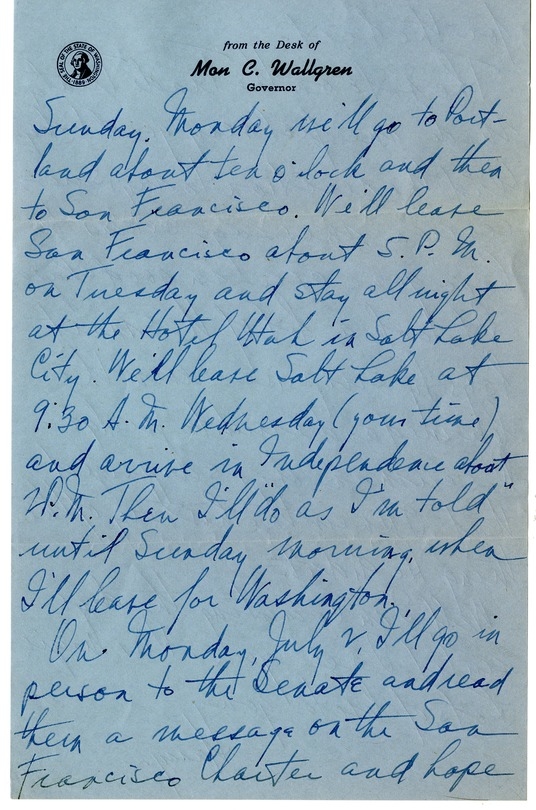 THE SEAL OF THE STATE OF WASHINGTON 1889
from the Desk of
Mon C. Wallgren
Governor
Sunday. Monday we'll go to Port-
land about ten o'lock and then
to San Francisco. We'll leave
San Francisco about 5. P. M.
on Tuesday and stay all night
at the Hotel Utah in Salt Lake
City. We'll leave Salt Lake at
9:30 A.M. Wednesday (your time)
and arrive in Independence about
2 P.M. Then I'll "do as I'm told"
until Sunday morning, when
I'll leave for Washington.
On Monday, July 2, I'll go in
person to the Senate and read
them a message on the San
Francisco Charter and hope